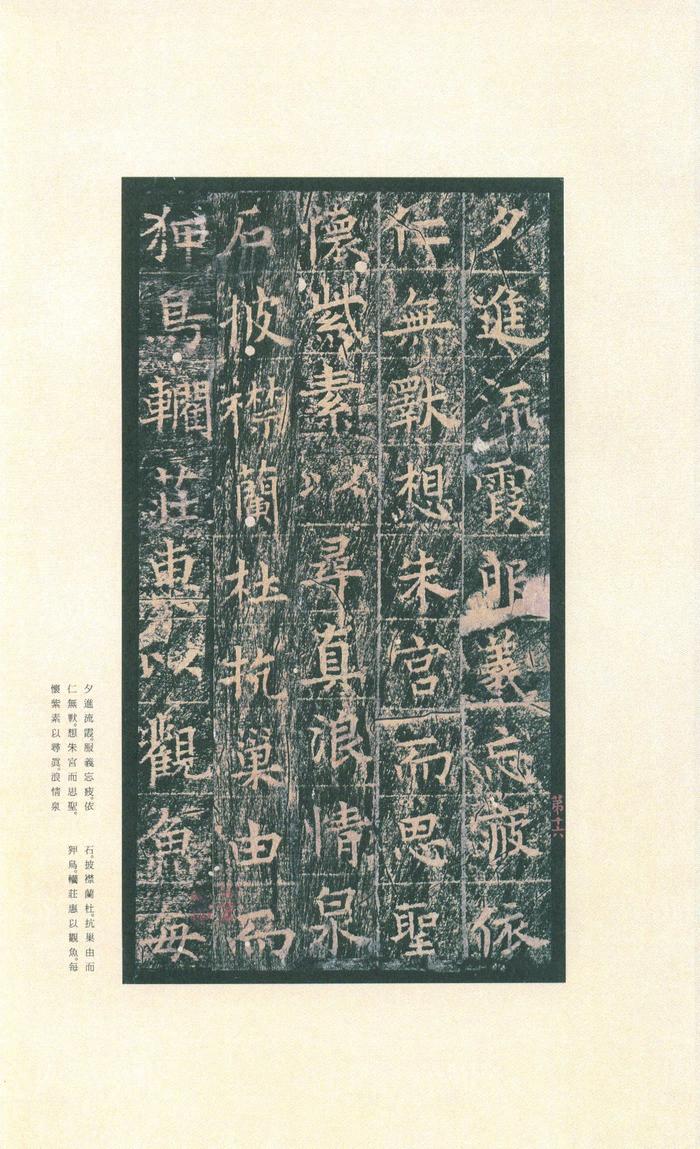 夕進流霞服義忘疲依
仁無猒想朱宮而思聖
懷紫素以尋真浪情泉
石披襟蘭杜抗巢由而
狎鳥轥莊惠以觀魚每
第十六
夕進流霞。服義忘疲。依
仁無猒。想朱宮而思聖。
懷紫素以尋眞。浪情泉
石。披襟蘭杜。抗巢由而
狎鳥。轥莊惠以觀魚。每